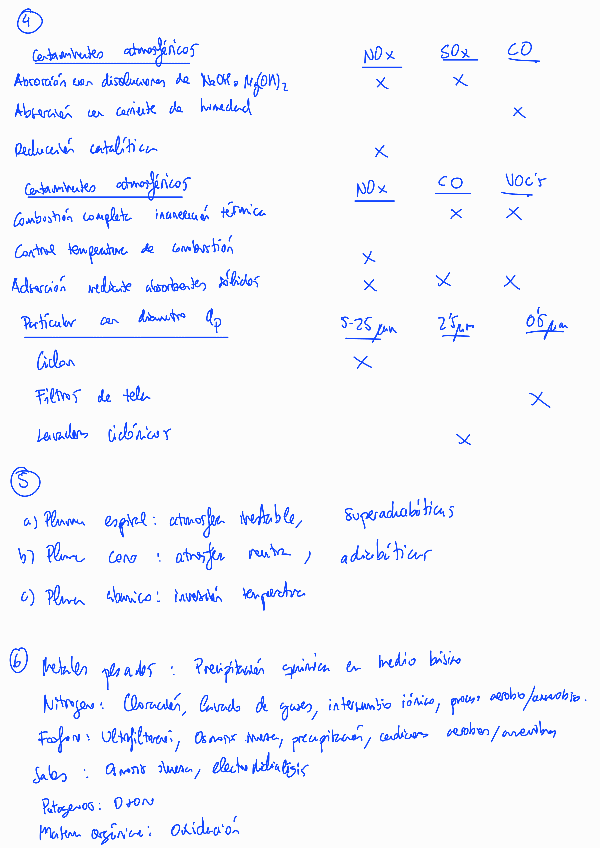 4
Contaminantes atmosféricos NOx SOx CO
Absorción con disoluciones de NaOH, Mg(OH)2 X X
Absorción con corriente de humedad X
Reducción catalítica X
Contaminantes atmosféricos NOx CO VOC's
Combustión completa incineración térmica X X
Control temperatura de combustión X
Adsorción mediante absorbentes sólidos X X X
Partículas con diámetro dp 5-25 μm 2'5 μm 0'5 μm
Ciclón X
Filtros de tela X
Lavadores ciclónicos X
5
a) Pluma espiral: atmosfera inestable, superadiabáticas
b) Pluma cono: atmosfera neutra, adiabáticas
c) Pluma abanico: inversión temperatura
6 Metales pesados: Precipitación química en medio básico
Nitrogeno: Cloración, lavado de gases, intercambio iónico, proces aerobio/anaerobio.
Fosforo: Ultrafiltración, Osmosis inversa, precipitación, condiciones aerobias/anaerobias
Sales: Osmosis inversa, electrodialisis
Patogenos:
Materia orgánica: Oxidación